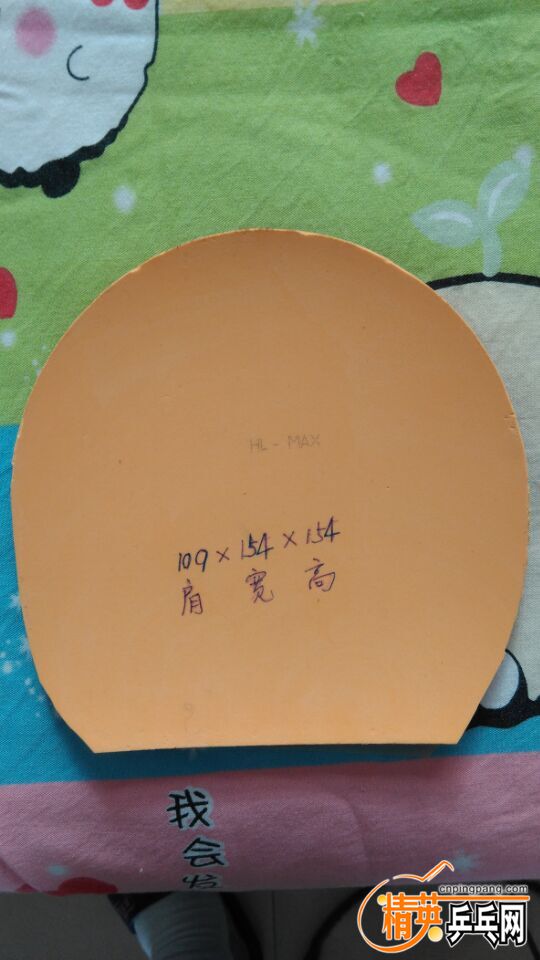 HL - MAX
109 × 154 × 154
肩 宽 高
我
会
发
cnpingpang.com
精英乒乓网